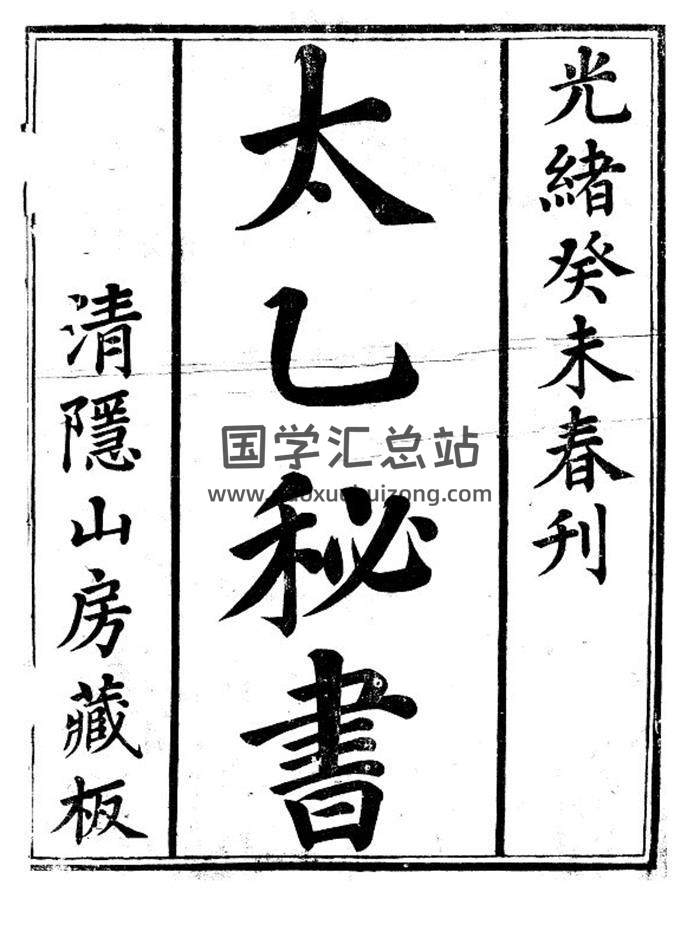 光緒癸未春刊
太乙秘書
清隱山房藏板
国学汇总站